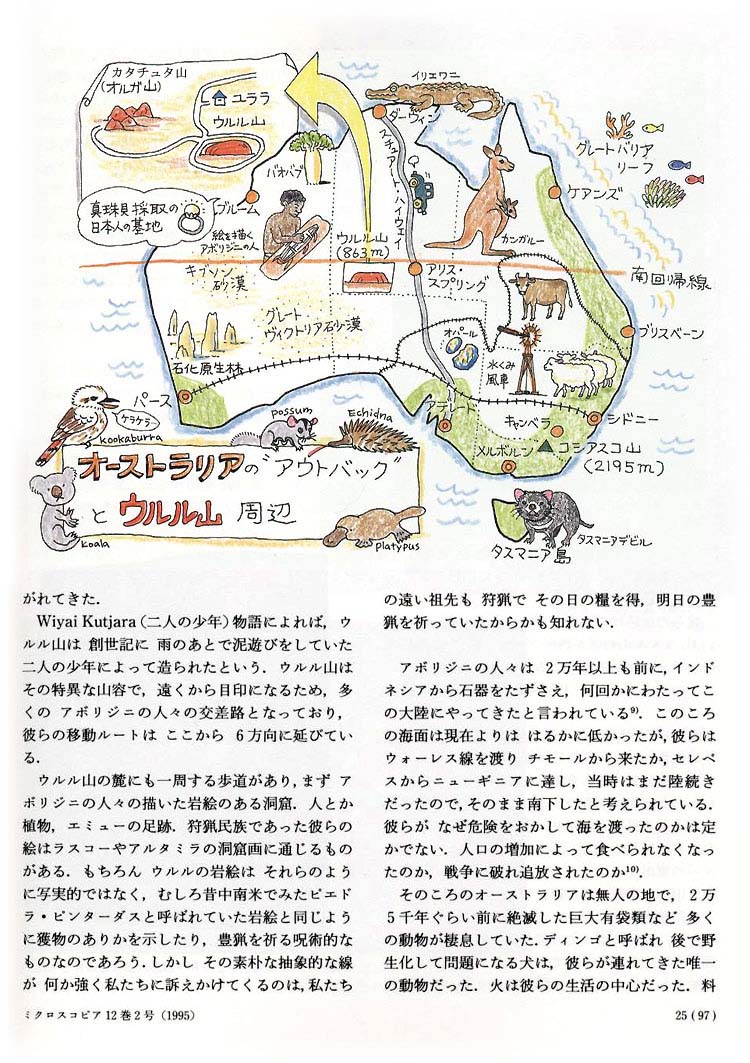 カタチュタ山
(オルガ山)
ユララ
ウルル山
イリエワニ
ダーウィン
スチュアート・ハイウェイ
グレートバリア
リーフ
バオバブ
ケアンズ
真珠貝採取の
日本人の基地
ブルーム
絵を描く
アボリジニの人
ウルル山
(863m)
カンガルー
アリス・
スプリング
南回帰線
ギブソン
砂漠
グレート
ヴィクトリア砂漠
オパール
水くみ
風車
ブリスベーン
石化原生林
パース
アデレード
キャンベラ
シドニー
メルボルン
コシアスコ山
(2195m)
ケラケラ
kookaburra
possum
Echidna
オーストラリアの"アウトバック"
と ウルル山 周辺
koala
platypus
タスマニア島
タスマニアデビル
がれてきた.
Wiyai Kutjara (二人の少年) 物語によれば, ウ
ルル山は 創世記に 雨のあとで泥遊びをしていた
二人の少年によって造られたという. ウルル山は
その特異な山容で, 遠くから目印になるため, 多
くの アボリジニの人々の交差路となっており,
彼らの移動ルートは ここから 6方向に延びてい
る.
ウルル山の麓にも一周する歩道があり, まず ア
ボリジニの人々の描いた岩絵のある洞窟. 人とか
植物, エミューの足跡. 狩猟民族であった彼らの
絵はラスコーやアルタミラの洞窟画に通じるもの
がある. もちろん ウルルの岩絵は それらのよう
に写実的ではなく, むしろ昔中南米でみたピエド
ラ・ピンターダスと呼ばれていた岩絵と同じよう
に獲物のありかを示したり, 豊猟を祈る呪術的な
ものなのであろう. しかし その素朴な抽象的な線
が 何か強く私たちに訴えかけてくるのは, 私たち
の遠い祖先も 狩猟で その日の糧を得, 明日の豊
猟を祈っていたからかも知れない.
アボリジニの人々は 2万年以上も前に, インド
ネシアから石器をたずさえ, 何回かにわたってこ
の大陸にやってきたと言われている9). このころ
の海面は現在よりは はるかに低かったが, 彼らは
ウォーレス線を渡り チモールから来たか, セレベ
スからニューギニアに達し, 当時はまだ陸続き
だったので, そのまま南下したと考えられている.
彼らが なぜ危険をおかして海を渡ったのかは定
かでない. 人口の増加によって食べられなくなっ
たのか, 戦争に破れ追放されたのか10).
そのころのオーストラリアは無人の地で, 2万
5千年ぐらい前に絶滅した巨大有袋類など 多く
の動物が棲息していた. ディンゴと呼ばれ 後で野
生化して問題になる犬は, 彼らが連れてきた唯一
の動物だった. 火は彼らの生活の中心だった. 料
ミクロスコピア 12巻2号 (1995)
25 (97)